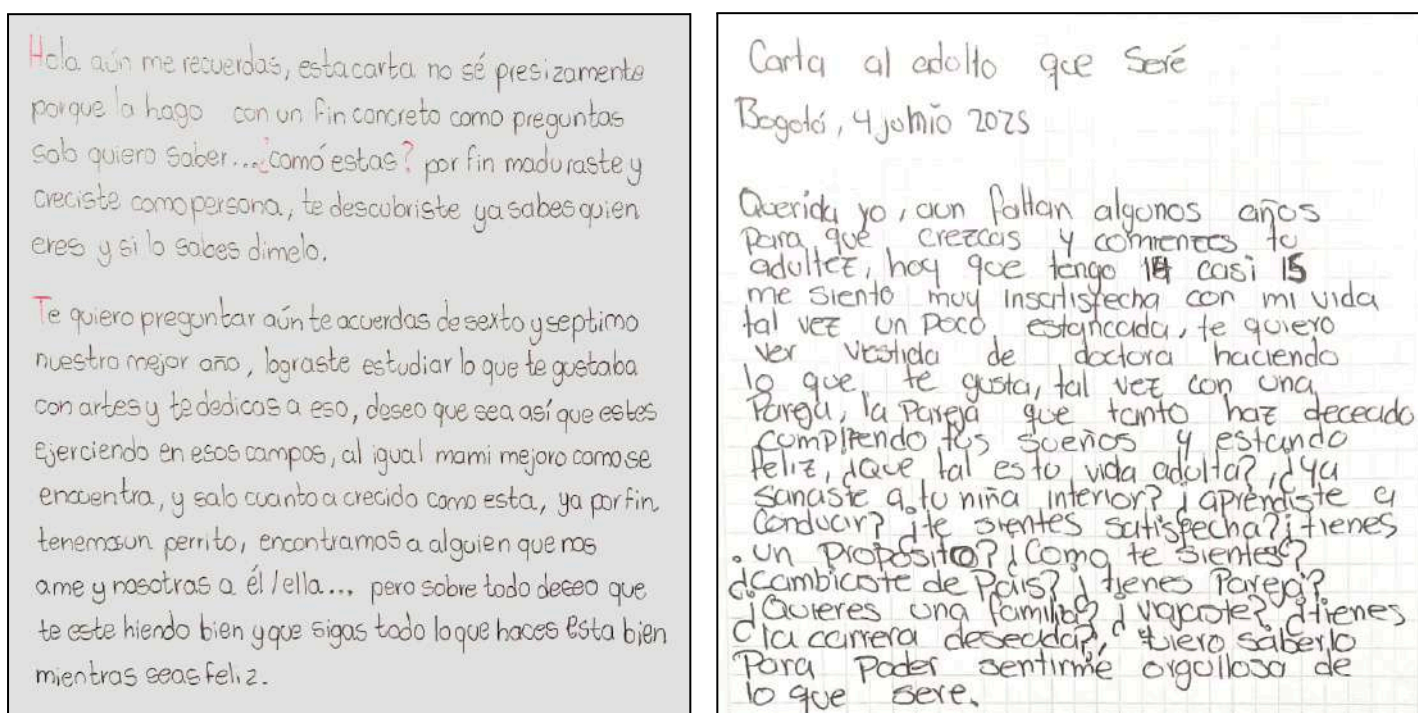 Hola aún me recuerdas, esta carta no sé presizamente
porque la hago con un fin concreto como preguntas
solo quiero saber...¿comó estas? por fin maduraste y
creciste como persona, te descubriste ya sabes quien
eres y si lo sabes dimelo.
Te quiero preguntar aún te acuerdas de sexto y septimo
nuestro mejor año, lograste estudiar lo que te gustaba
con artes y te dedicas a eso, deseo que sea así que estes
ejerciendo en esos campos, al igual mami mejoro como se
encuentra, y salo cuanto a crecido como esta, ya por fin
tenemos un perrito, encontramos a alguien que nos
ame y nosotras a él/ella... pero sobre todo deseo que
te este hiendo bien y que sigas todo lo que haces esta bien
mientras seas feliz.
Carta al adulto que Seré
Bogotá, 4 junio 2025
Querida yo, aun faltan algunos años
para que crezcas y comiences tu
adultez, hoy que tengo 14 casi 15
me siento muy insatisfecha con mi vida
tal vez un poco estancada, te quiero
ver vestida de doctora haciendo
lo que te gusta, tal vez con una
Pareja, la Pareja que tanto haz dececado
cumpliendo tus sueños y estando
feliz, ¿Que tal es tu vida adulta?, ¿ya
sanaste a tu niña interior? ¿aprendiste a
conducir? ¿te sientes satisfecha? ¿tienes
un Proposito? ¿Como te sientes?
¿cambiaste de Pais? ¿tienes Pareja?
¿Quieres una familia? ¿viajaste? ¿tienes
la carrera deseada?, quiero saberlo
Para Poder sentirme orgullosa de
lo que sere.